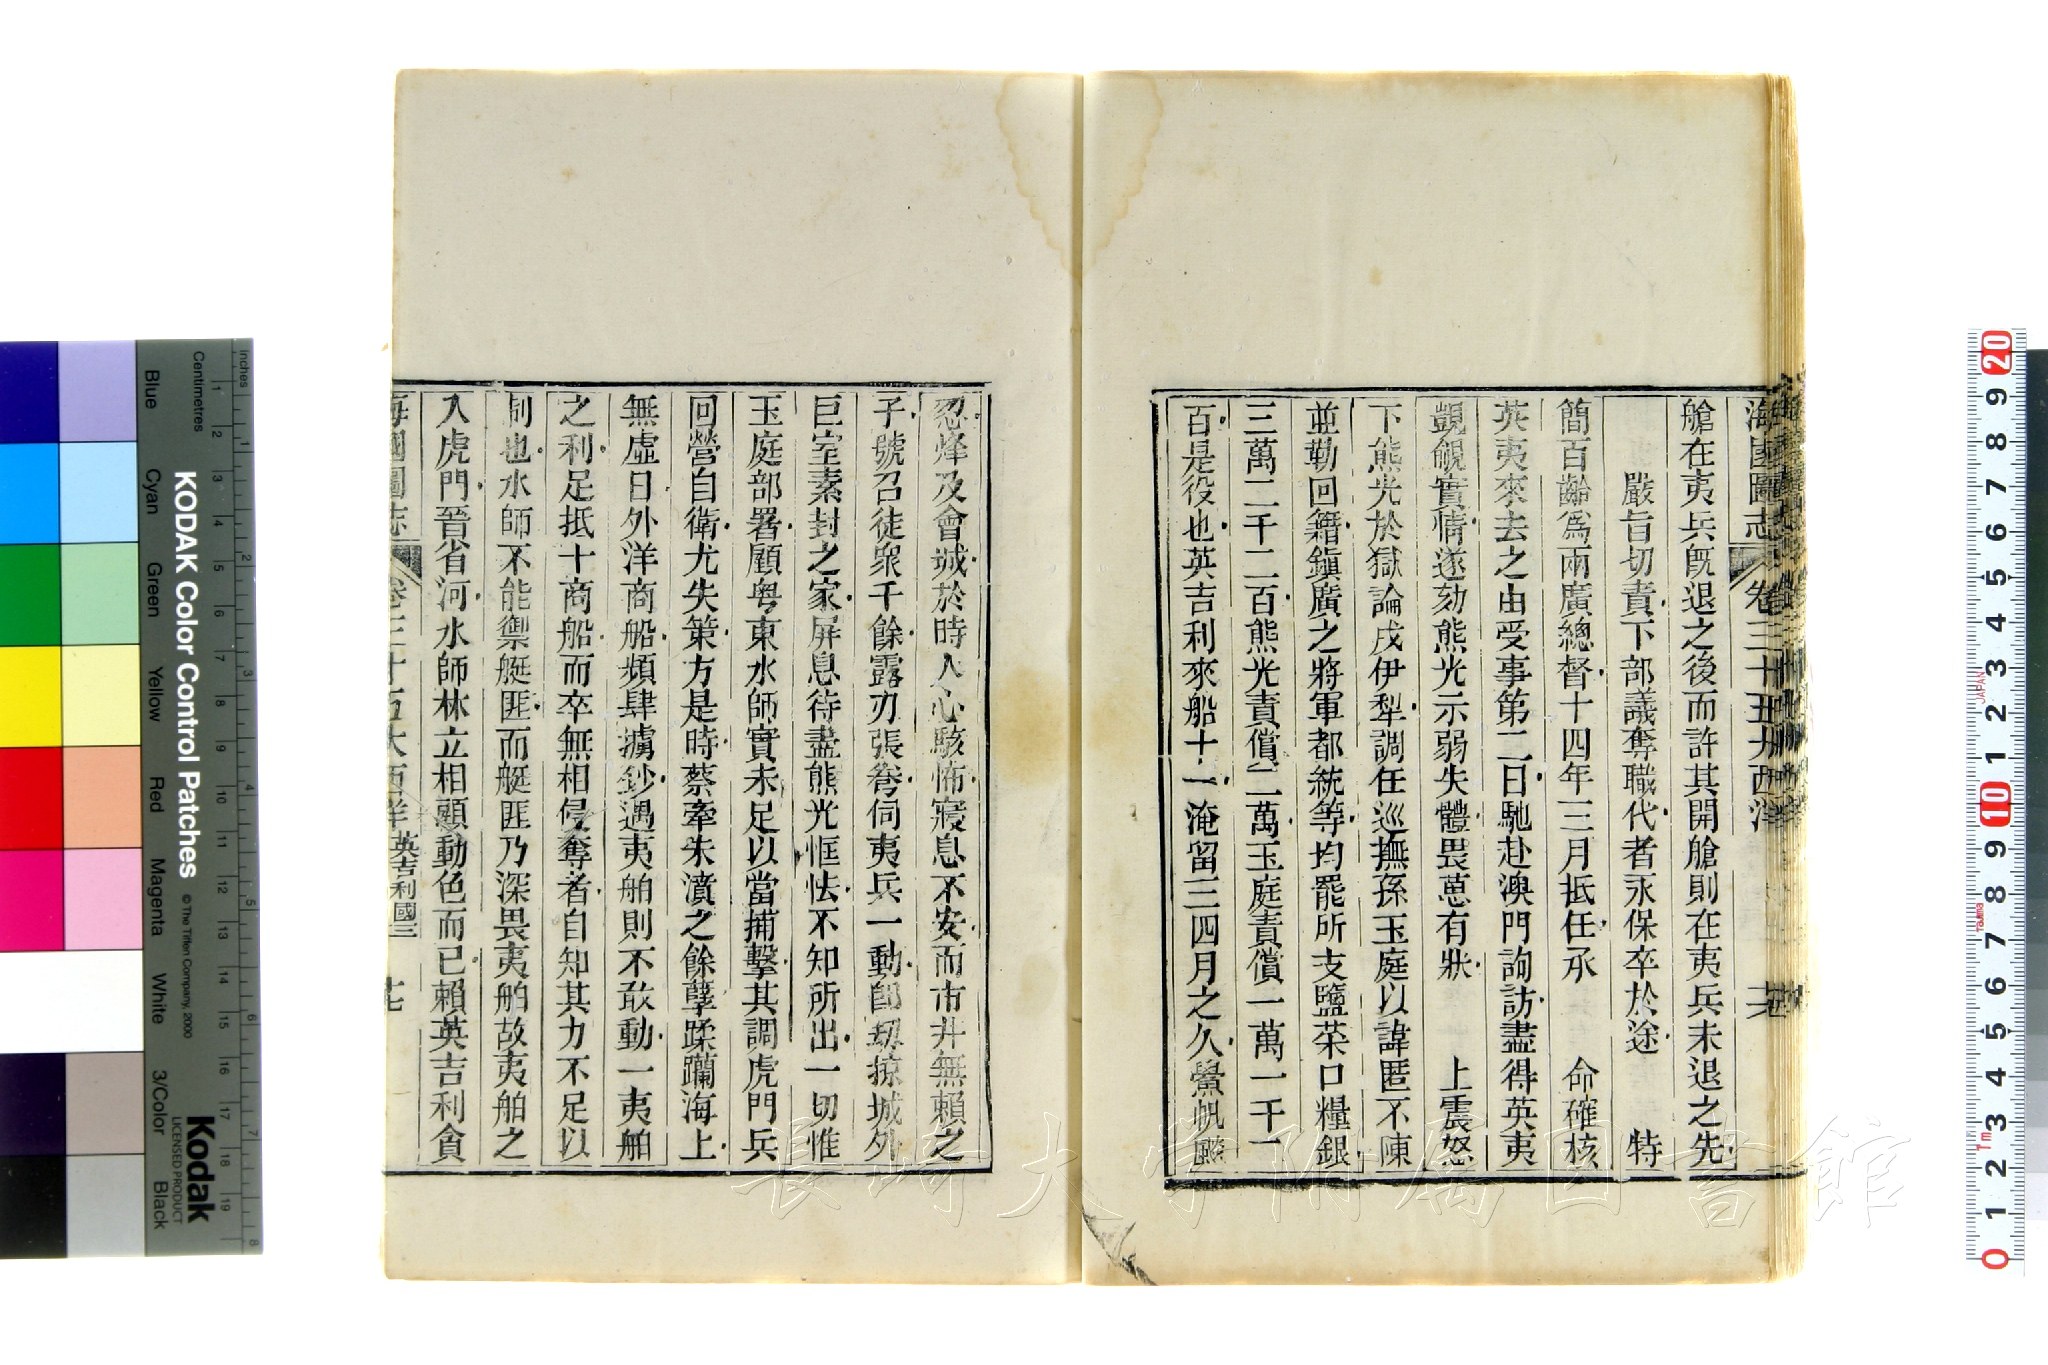 海國圖志
卷三十五大西洋
艙在夷兵旣退之後而許其開艙則在夷兵未退之先
嚴旨切責下部議奪職代者永保卒於途 特
簡百齡爲兩廣總督十四年三月抵任承 命確核
英夷來去之由受事第二日馳赴澳門詢訪盡得英夷
覬覦實情遂劾熊光示弱失體畏葸有狀 上震怒
下熊光於獄論戍伊犁調任巡撫孫玉庭以諱匿不陳
並勒回籍鎭廣之將軍都統等均罷所支鹽菜口糧銀
三萬二千二百熊光責償二萬玉庭責償一萬一千一
百是役也英吉利來船十一淹留三四月之久鱟帆颺
忽烽及會城於時人心駭怖寢息不安而市井無賴之
子號召徒眾千餘露刃張弮伺夷兵一動卽刼掠城外
巨室素封之家屏息待盡熊光恇怯不知所出一切惟
玉庭部署顧粤東水師實未足以當捕擊其調虎門兵
回營自衛尤失策方是時蔡牽朱濆之餘孽蹂躪海上
無虛日外洋商船頻肆擄鈔遇夷舶則不敢動一夷舶
之利足抵十商船而卒無相侵奪者自知其力不足以
制也水師不能禦艇匪而艇匪乃深畏夷舶故夷舶之
入虎門晉省河水師林立相顧動色而已賴英吉利貪
海國圖志
卷三十五大西洋英吉利國三
七
KODAK Color Control Patches
© The Tiffen Company, 2000
Kodak
LICENSED PRODUCT
Inches
Centimetres
Blue
Cyan
Green
Yellow
Red
Magenta
White
3/Color
Black
JAPAN
長崎大学附属図書館